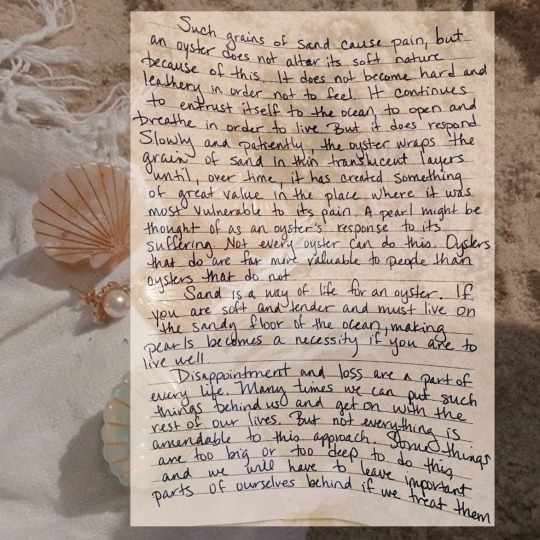 Such grains of sand cause pain, but
an oyster does not alter its soft nature
because of this. It does not become hard and
leathery in order not to feel. It continues
to entrust itself to the ocean, to open and
breathe in order to live. But it does respond.
Slowly and patiently, the oyster wraps the
grain of sand in thin translucent layers
until, over time, it has created something
of great value in the place where it was
most vulnerable to its pain. A pearl might be
thought of as an oyster's response to its
suffering. Not every oyster can do this. Oysters
that do are far more valuable to people than
oysters that do not.
Sand is a way of life for an oyster. If
you are soft and tender and must live on
the sandy floor of the ocean, making
pearls becomes a necessity if you are to
live well.
Disappointment and loss are a part of
every life. Many times we can put such
things behind us and get on with the
rest of our lives. But not everything is
amendable to this approach. Some things
are too big or too deep to do this,
and we will have to leave important
parts of ourselves behind if we treat them